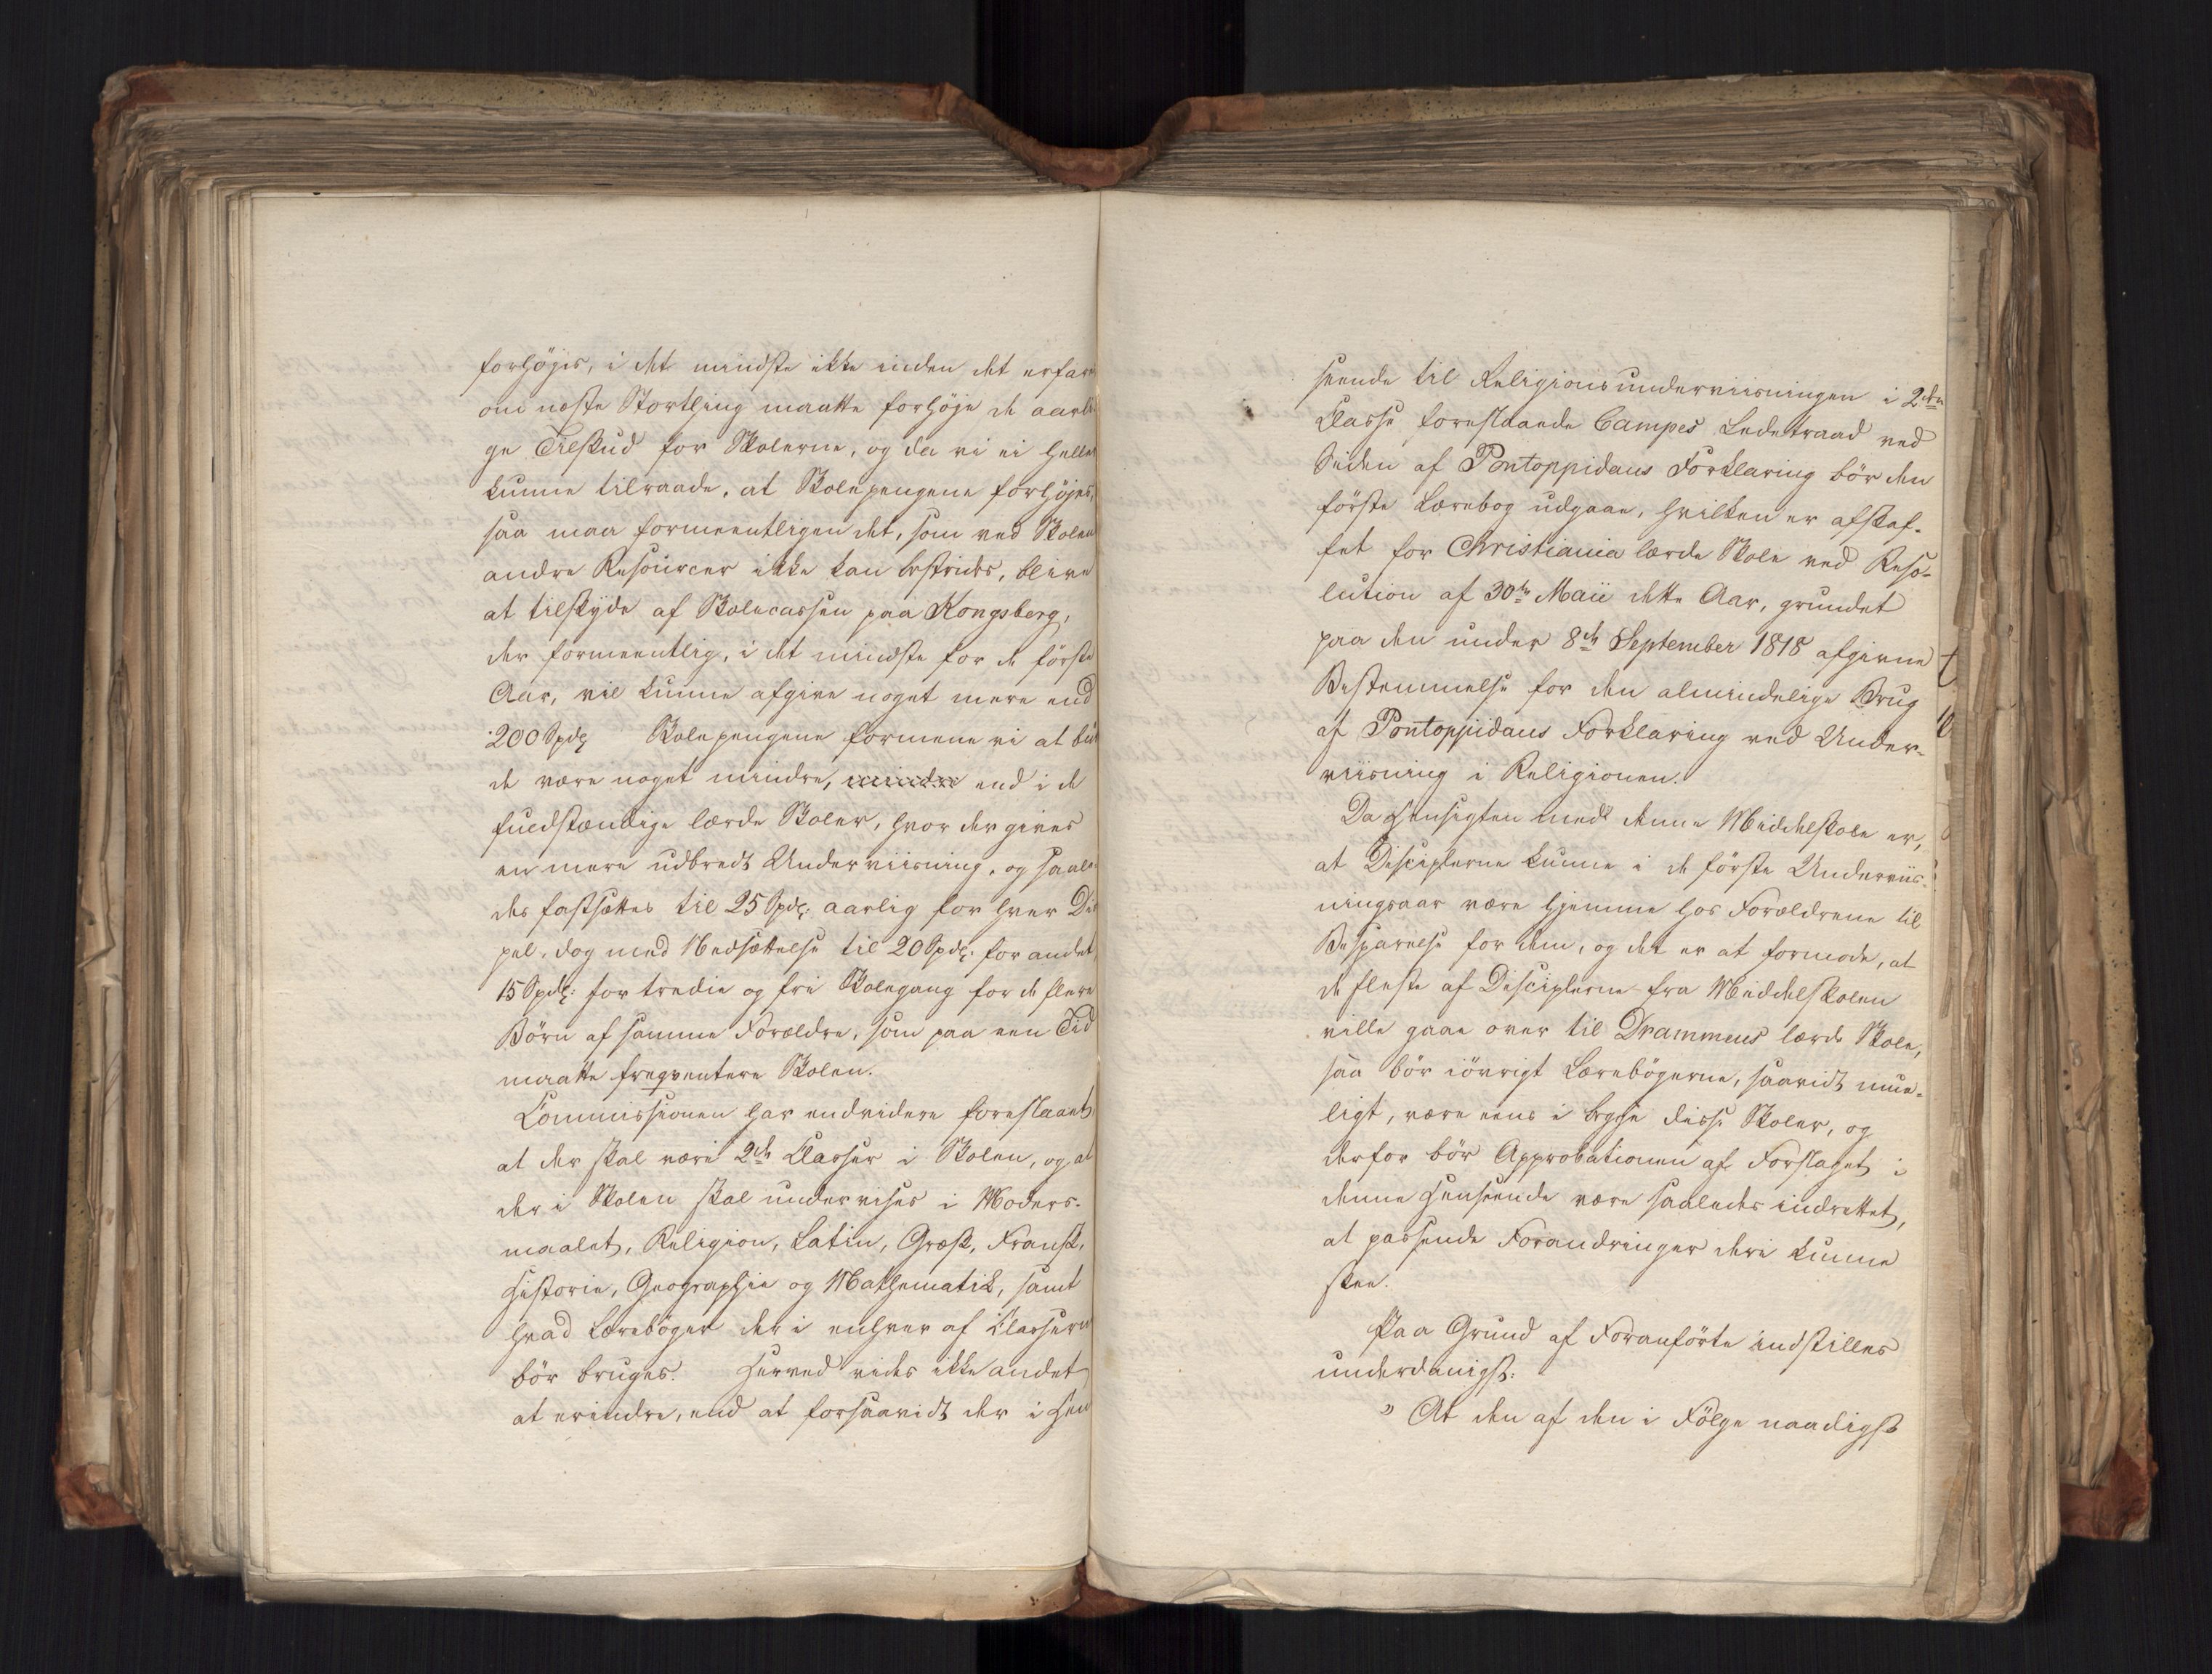 forhöjes, i det mindste ikke inden det erfare
om næste Storthing maatte forhöje de aarli
ge Tilskud for Skolerne, og da vi ei heller
kunne tilraade, at Skolepengene forhöjes,
saa maa formeentligen det, som ved Skolen
andre Resourcer ikke kan bestrides, blive
at tilskyde af Skolecassen paa Kongsberg,
der formeentlig, i det mindste for de förste
Aar, vil kunne afgive noget mere end
200 Spdlr Skolepengene formene vi at bur
de være noget mindre, mindre end i de
fuldstændige lærde Skoler, hvor der gives
en mere udbredt Underviisning, og saale
des fastsættes til 25 Spdlr: aarlig for hver Di
pel, dog med Nedsættelse til 20 Spdlr: for andet,
15 Spdlr: for tredie og fri Skolegang for de flere
Börn af samme Forældre, som paa een Tid
maatte freqventere Skolen.
Commissionen har endvidere foreslaaet,
at der skal være 2de Classer i Skolen, og at
der i Skolen skal undervises i Moders-
maalet, Religion, Latin, Græsk, Fransk,
Historie, Geographie og Mathematik, samt
hvad Lærebøger der i enhver af Classerne
bör bruges. Herved vides ikke andet
at erindre, end at forsaavidt der i Hen
seende til Religionsunderviisningen i 2den
Classe foreslaaede Campes Ledetraad ved
Siden af Pontoppidans Forklaring bör den
förste Lærebog udgaae, hvilken er afskaf-
fet for Christiania lærde Skole ved Reso-
lution af 30te Maii dette Aar, grundet
paa den under 8de September 1818 afgivne
Bestemmelse for den almindelige Brug
af Pontoppidans Forklaring ved Under-
viisning i Religionen.
Da Hensigten med denne Middelskole er,
at Disciplerne kunne i de förste Underviis-
ningsaar være hjemme hos Forældrene til
Besparelse for dem, og det er at formode, at
de fleste af Disciplerne fra Middelskolen
ville gaae over til Drammens lærde Skole,
saa bör iövrigt Lærebögerne, saavidt mue-
ligt, være eens i begge disse Skoler, og
derfor bör Approbationen af Forslaget i
denne Henseende være saaledes indrettet,
at passende Forandringer deri kunne
skee.
Paa Grund af Foranförte indstilles
underdanigst:
" At den af den i Fölge naadigst